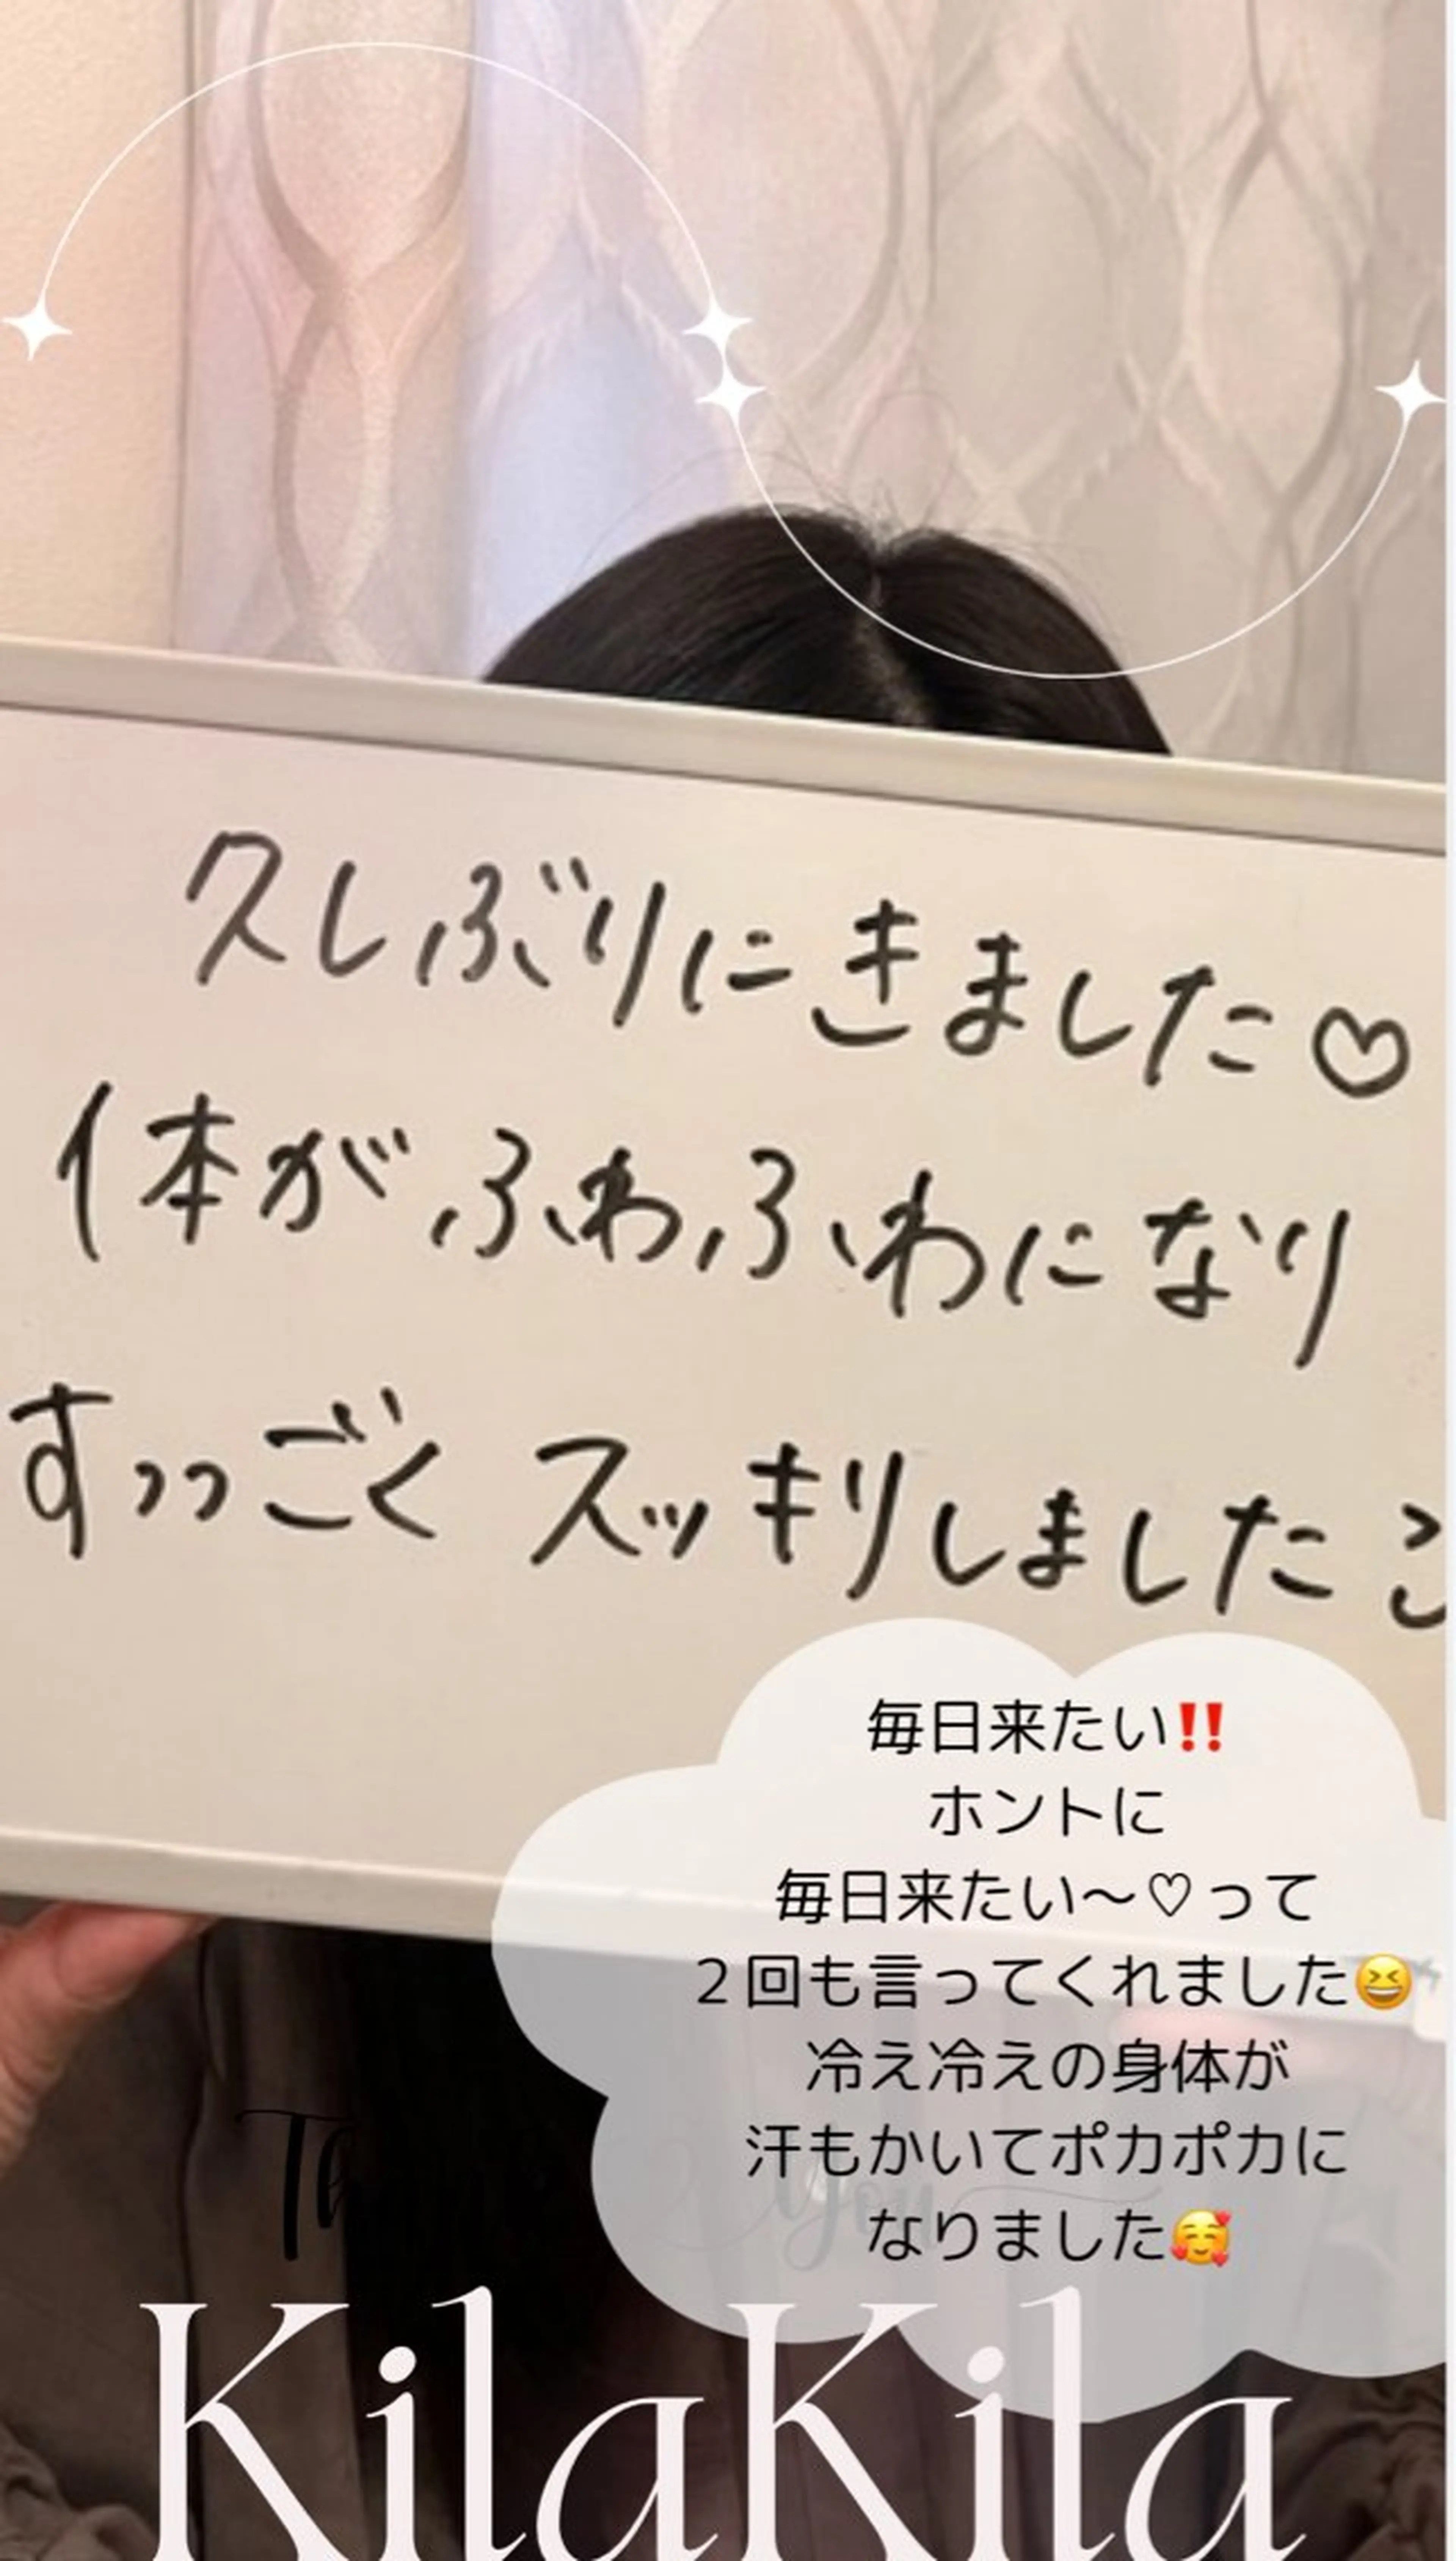 久しぶりにきました♡
体がふわふわになり
すっごくスッキリしました
毎日来たい‼️
ホントに
毎日来たい〜♡って
２回も言ってくれました😆
冷え冷えの身体が
汗もかいてポカポカに
なりました🥰
Thank You
KilaKila